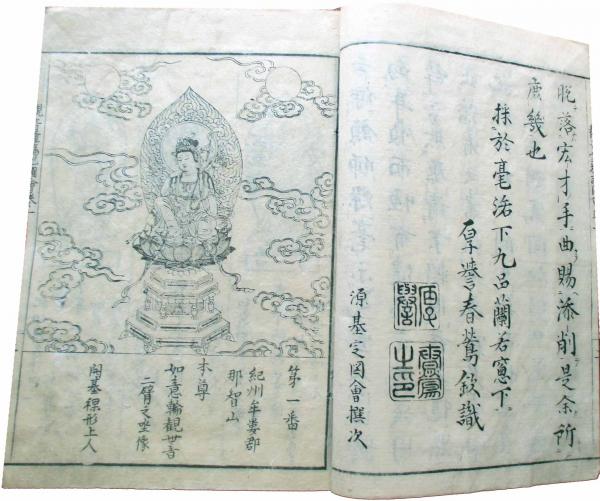 脱落宏才手曲賜添削是余所
庶幾也
採於毫渚下九品蘭若窻下
厚誉春鶯欽識
源基定図會撰次
第一番
紀州牟婁郡
那智山
本尊
如意輪観世音
二臂之坐像
開基裸形上人